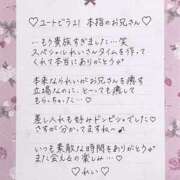 ♡ユートピラユ! 本指のお兄さん♡
…もう貴族すぎました…笑
スペシャルれいさんタイムを作って
くれて本当にありがとう
本来なられいがお兄さんを癒す
立場なのに、とっても癒して
もらっちゃた…♡
差し入れも好みドンピシャでした♡
さすが分かってますねぇ〜
いつも素敵な時間をありがとう
また会える日の楽しみ…♡
♡れい♡